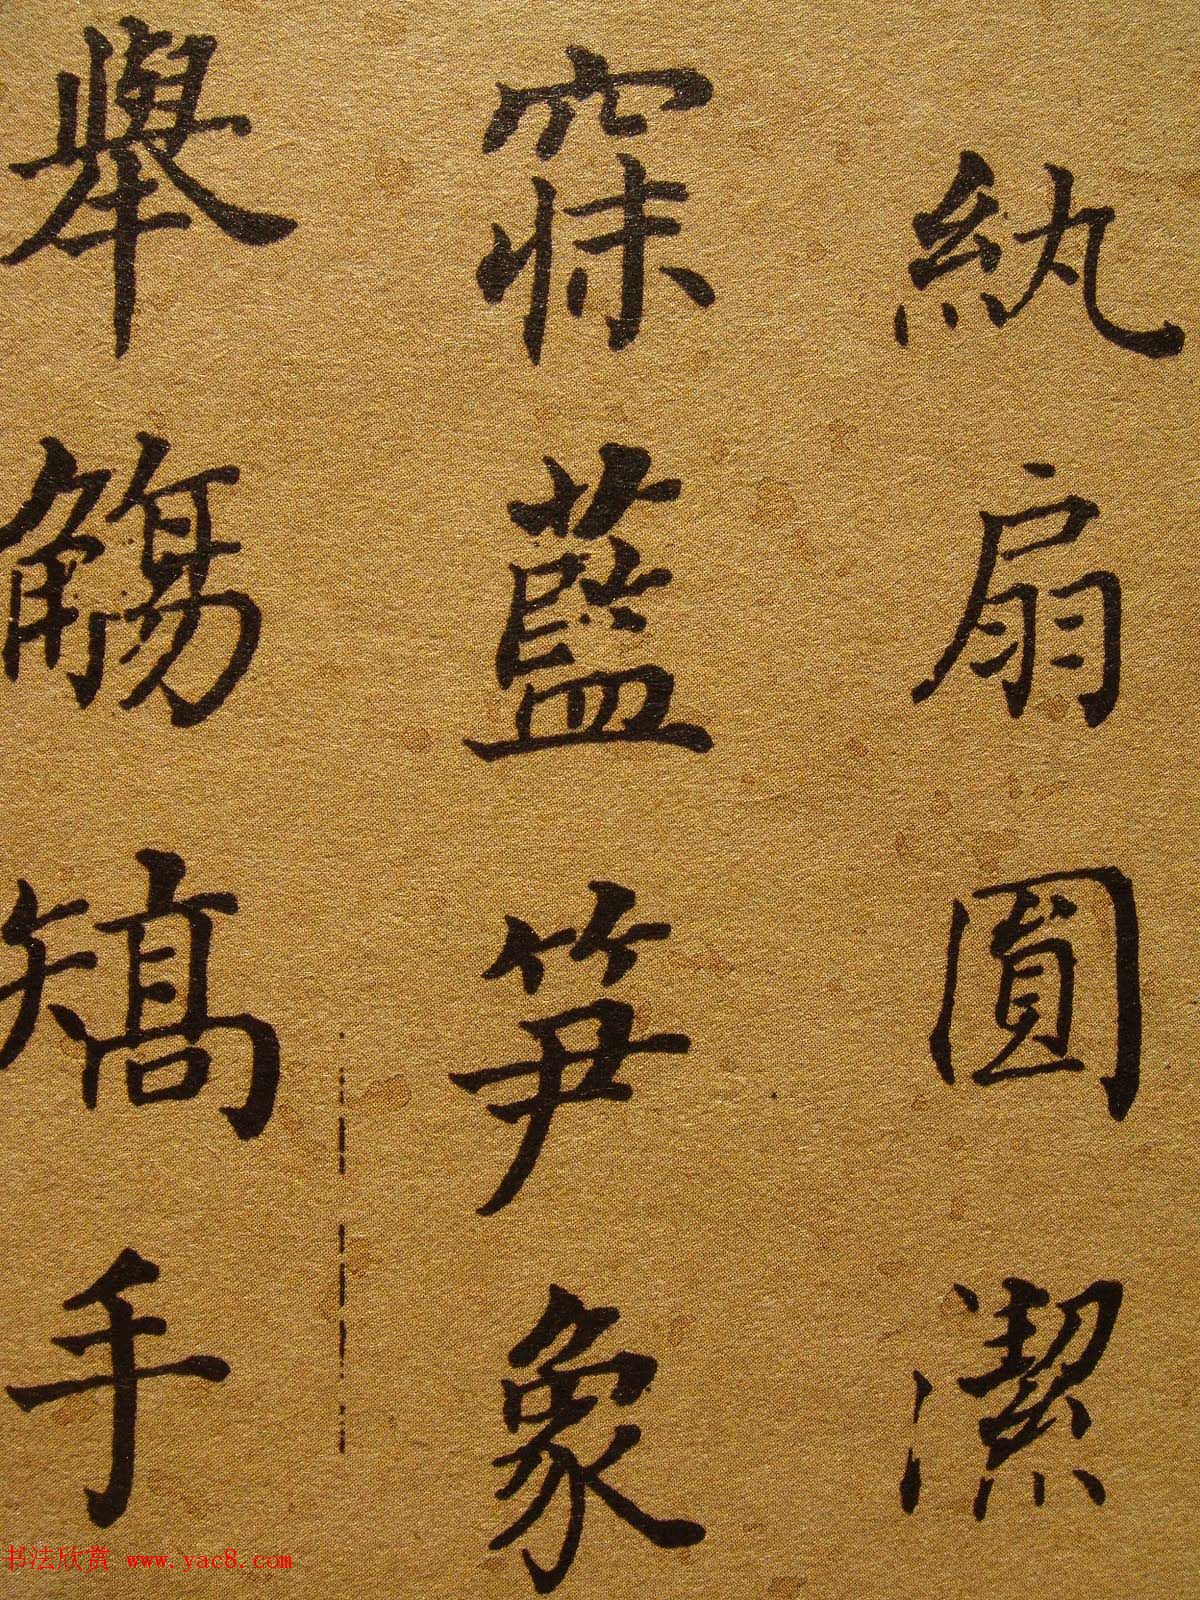 紈扇圓潔
寐藍笋象
舉觴矯手
书法欣赏 www.yac8.com